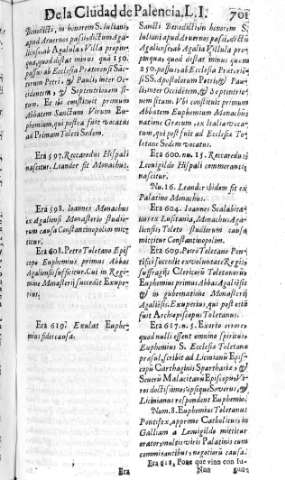 De la Ciudad de Palencia, L. I. 701
Benedicti, in honorem S. Iuliani,
quod
galiensis ab Agalula Villa propin
qua, quod distat minus quà 150.
passus ab Ecclesia Pratensi San-
ctorum Petri, & Pauli inter Occi
dentem, & Septentrionem si-
tum. Et ibi constituit primum
Abbatem Sanctum Virum Eu-
phemium, qui postea fuit vocatus
ad Primam Toleti Sedem.
Era 597. Reccaredus Hispali
nascitur. Leander fit Monachus.
Era 598. Ioannes Monachus
ex Agaliensi Monasterio studio-
rum causa Constantinopolim mit
titur.
Era 608. Petro Toletano Epis
copo Euphemius primus Abbas
Agaliensis sufficitur. Cui in Regi-
mine Monasterij succedit Exupe-
rius.
Era 619. Exulat Euphe
mius fidei causa.
Era
Sancti Benedicti in honorem S.
Iuliani
Agaliensis ab Agalia Villula pro
pinqua, quod distat minus quam
250. passus ab Ecclesia Prætoriẽsi
SS. Apostolorum Petri, & Pauli
inter Occidẽtem, & Septentrio-
nem situm. Vbi constituit primum
Abbatem Euphemium Monachũ
natione Græcum, ex Italia voca-
tum, qui post fuit ad Ecclesia To-
letanæ Sedem vocatus.
Era 600. nu. 15. Reccaredus
Leovigildo Hispali commorante
nascitur.
Nu. 16. Leander ibidem fit ex
Palatino Monachus.
Era 604. Ioannes Scalabita-
nus ex Lusitania, Monachus Aga-
liensis Toleto studiorum causa
mittitur Constantinopolim.
Era 609. Petro Toletano Pon-
tifici succedit ex voluntate Regis,
suffragijs Clericorũ Toletanorũ
Euphemius primus Abbas Agaliẽsis
& in gubernatione Monasterij
Agaliẽsis, Exuperius, qui post etiã
fuit Archiepiscopus Toletanus.
Era 617. n. 5. Exorto errore
quod nulli essent omnino spiritus
Euphemius S. Ecclesiæ Toletanæ
præsul, scribit ad Licinianũ Epis-
copũ Carthaginis Sparthariæ &
Severũ Malacitanũ Episcopũ Vi-
ros doctissimos, ipseque Severus, &
Licinianus respondent Euphemio.
Num. 8. Euphemius Toletanus
Pontifex, appreme Catholicus in
Galliam a Leovigildo mittitur
orator, multis viris Palatinis eum
comitantibus, negotiorũ causa.
Era 618. Pone que vino con su-
Nnn